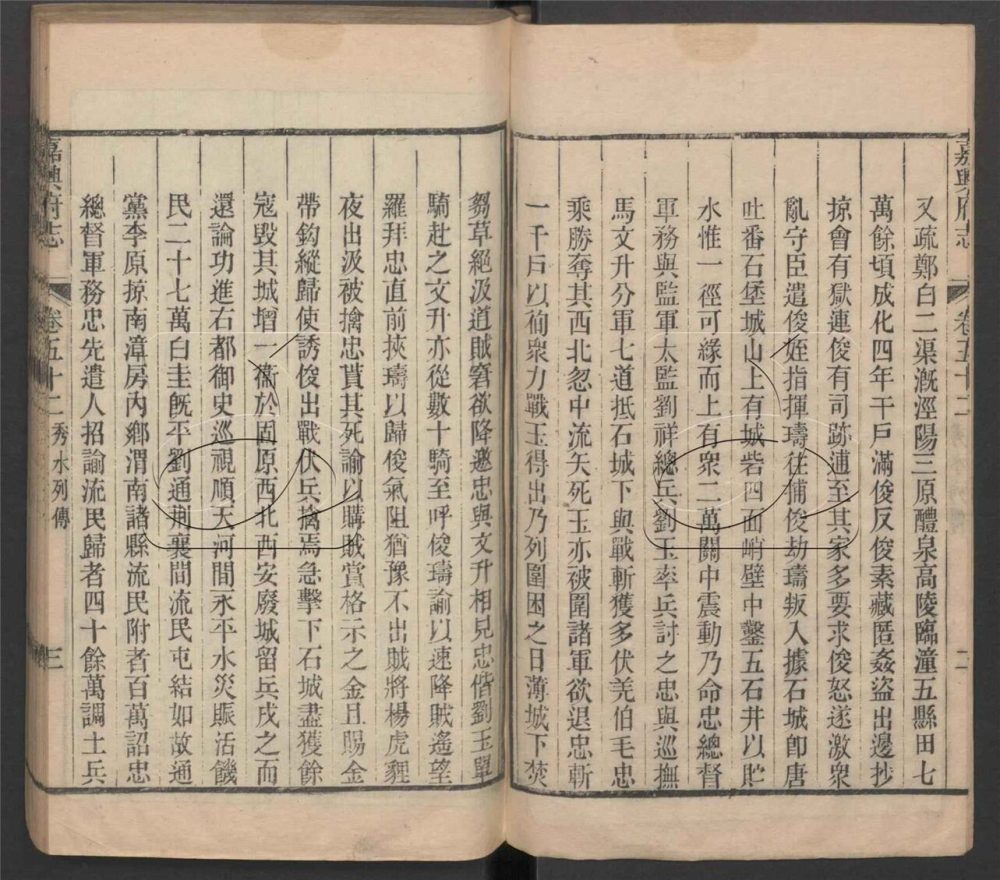 嘉興府志 卷五十二 二
又疏鄭白二渠漑涇陽三原醴泉高陵臨潼五縣田七
萬餘頃成化四年干戶滿俊反俊素藏匿姦盜出邊抄
掠會有獄連俊有司跡逋至其家多要求俊怒遂激衆
亂守臣遣俊姪指揮璹往捕俊劫璹叛入據石城卽唐
吐番石堡城山上有城砦四面峭壁中鑿五石井以貯
水惟一徑可緣而上有衆二萬關中震動乃命忠總督
軍務與監軍太監劉祥總兵劉玉率兵討之忠與巡撫
馬文升分軍七道抵石城下與戰斬獲多伏羌伯毛忠
乘勝奪其西北忽中流矢死玉亦被圍諸軍欲退忠斬
一千戶以徇衆力戰玉得出乃列圍困之日薄城下焚
芻草絕汲道賊窘欲降邀忠與文升相見忠偕劉玉單
騎赴之文升亦從數十騎至呼俊璹諭以速降賊遙望
羅拜忠直前挾璹以歸俊氣阻猶豫不出賊將楊虎貍
夜出汲被擒忠貰其死諭以購賊賞格示之金且賜金
帶鈎縱歸使誘俊出戰伏兵擒焉急擊下石城盡獲餘
寇毀其城增一衞於固原西北西安廢城留兵戍之而
還論功進右都御史巡視順天河間永平水災賑活饑
民二十七萬白圭旣平劉通荆襄間流民屯結如故通
黨李原掠南漳房內鄉渭南諸縣流民附者百萬詔忠
總督軍務忠先遣人招諭流民歸者四十餘萬調土兵
嘉興府志 卷五十二 秀水列傳 三